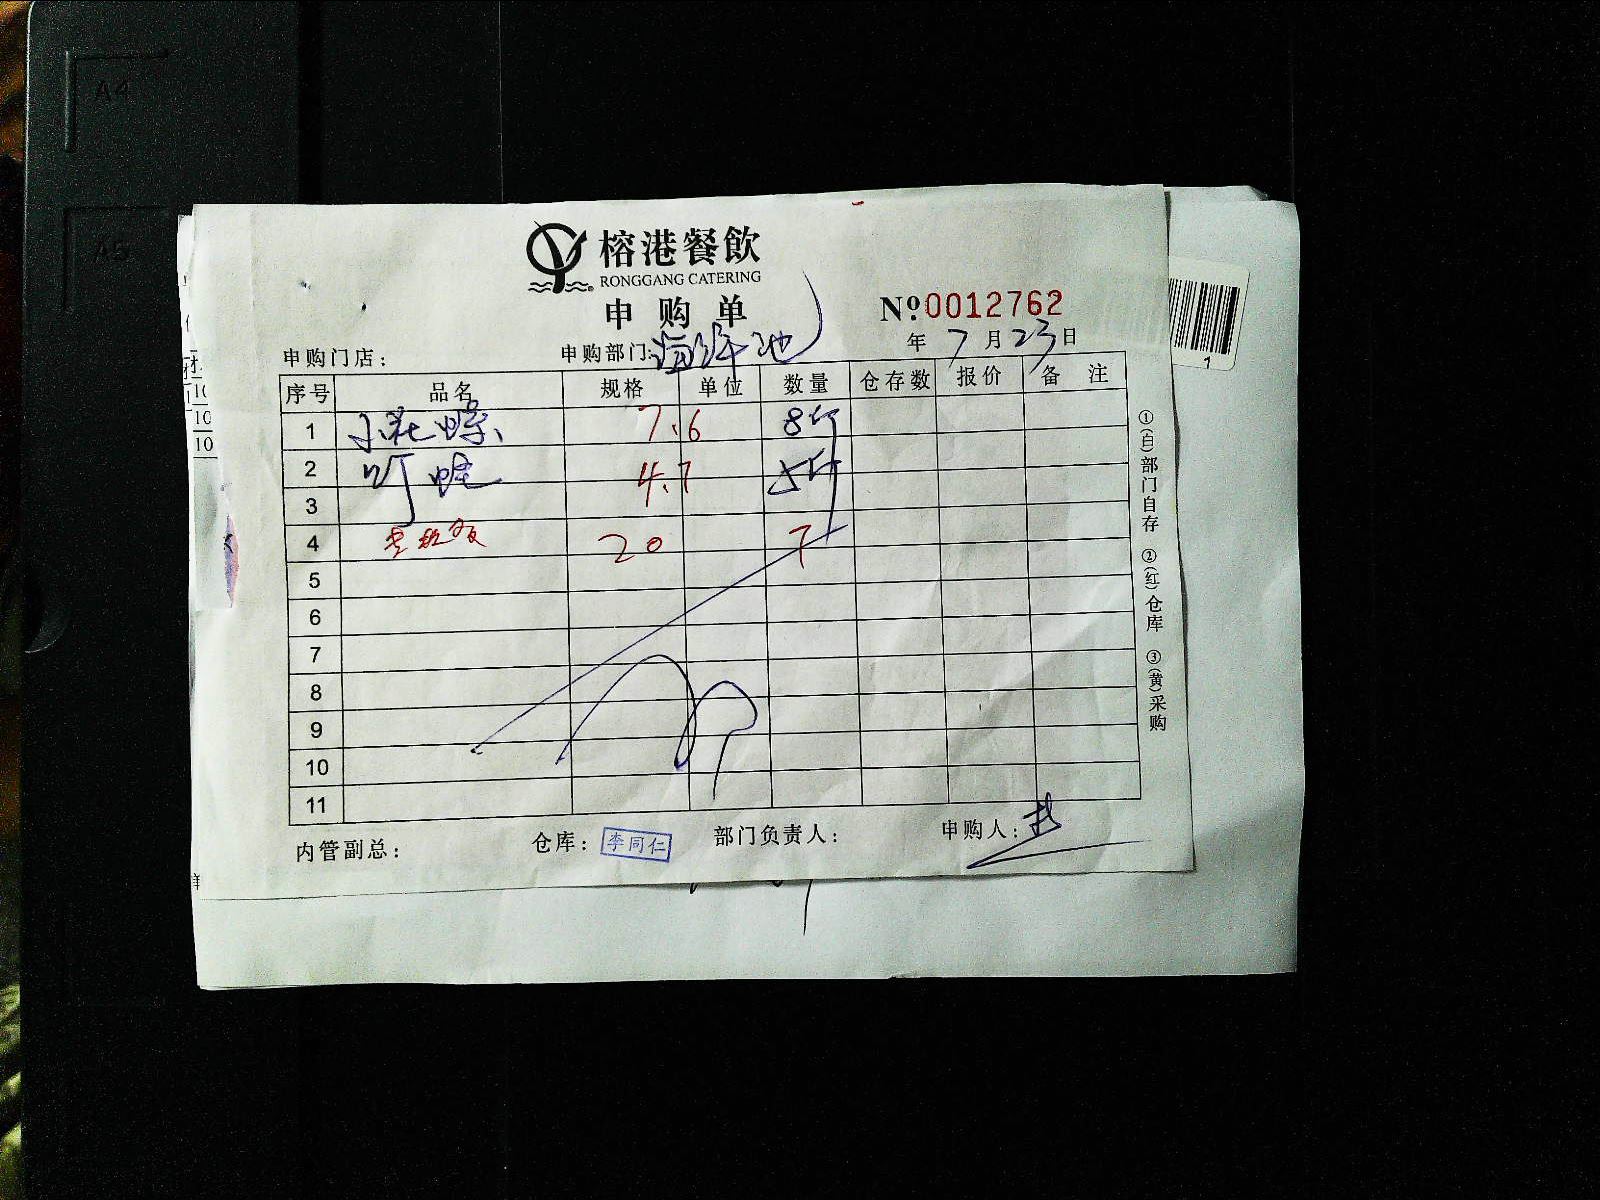 A4
A5
榕港餐飲
RONGGANG CATERING
申购单
Nº:0012762
年 7 月 23 日
申购门店:
申购部门:海鲜池
序号 品名 规格 单位 数量 仓存数 报价 备 注
1 小花螺 7.6 8斤
2 叮螺 4.7 5斤
3
4 20 7
5
6
7
8
9
10
11
①(白)部门自存 ②(红)仓库 ③(黄)采购
内管副总: 仓库: 李同仁 部门负责人: 申购人:
10
10
10
1